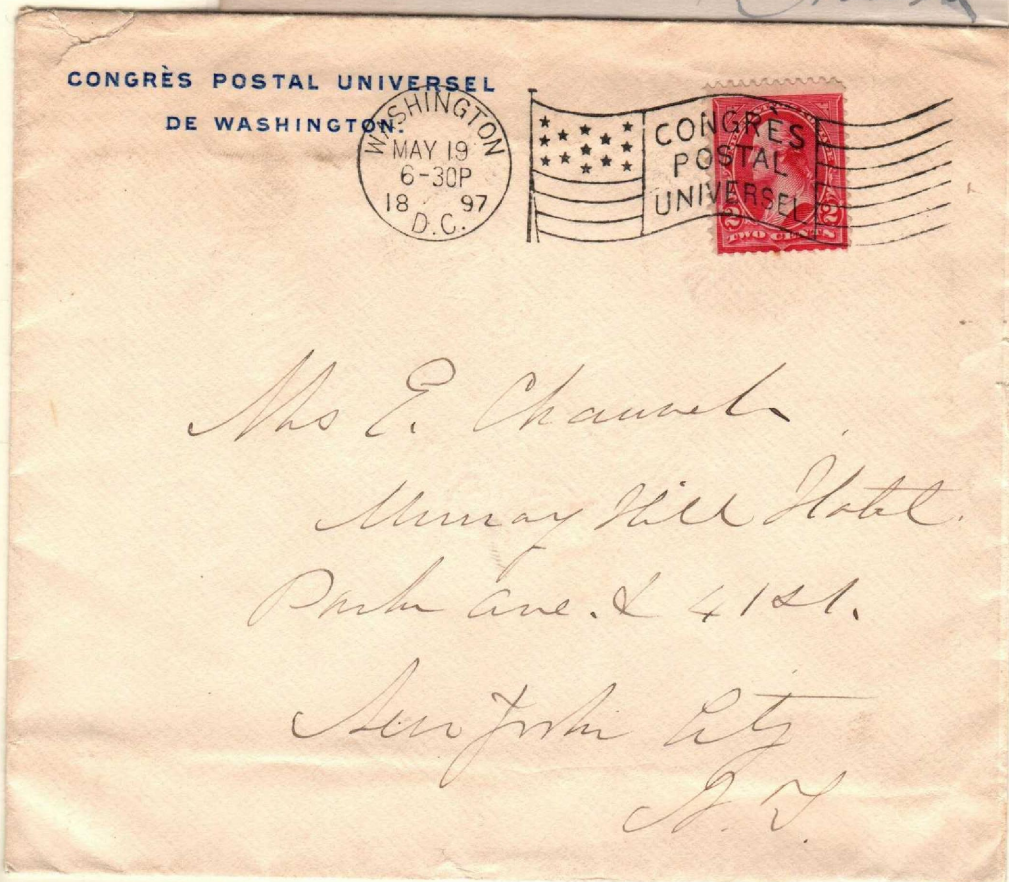 CONGRÈS POSTAL UNIVERSEL
DE WASHINGTON.
WASHINGTON
MAY 19
6-30P
18 97
D.C.
CONGRÈS
POSTAL
UNIVERSEL
2 2
TWO CENTS
Mrs E.
Murray Hill Hotel.
Park Ave. & 41 St.
New York City
N. Y.